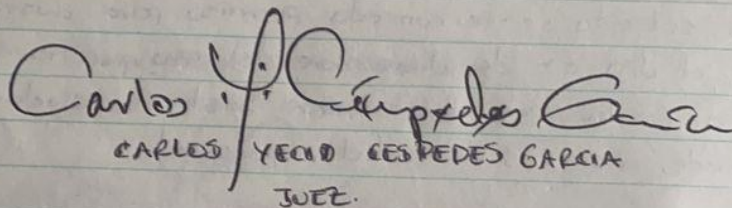 Carlos Y. Céspedes García
CARLOS YECID CESPEDES GARCIA
JUEZ.